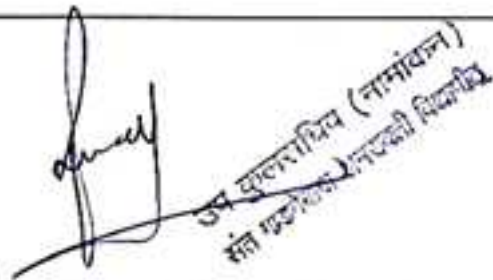 उप कुलसचिव (नामांकन)
संत अमरावती विद्यापीठ